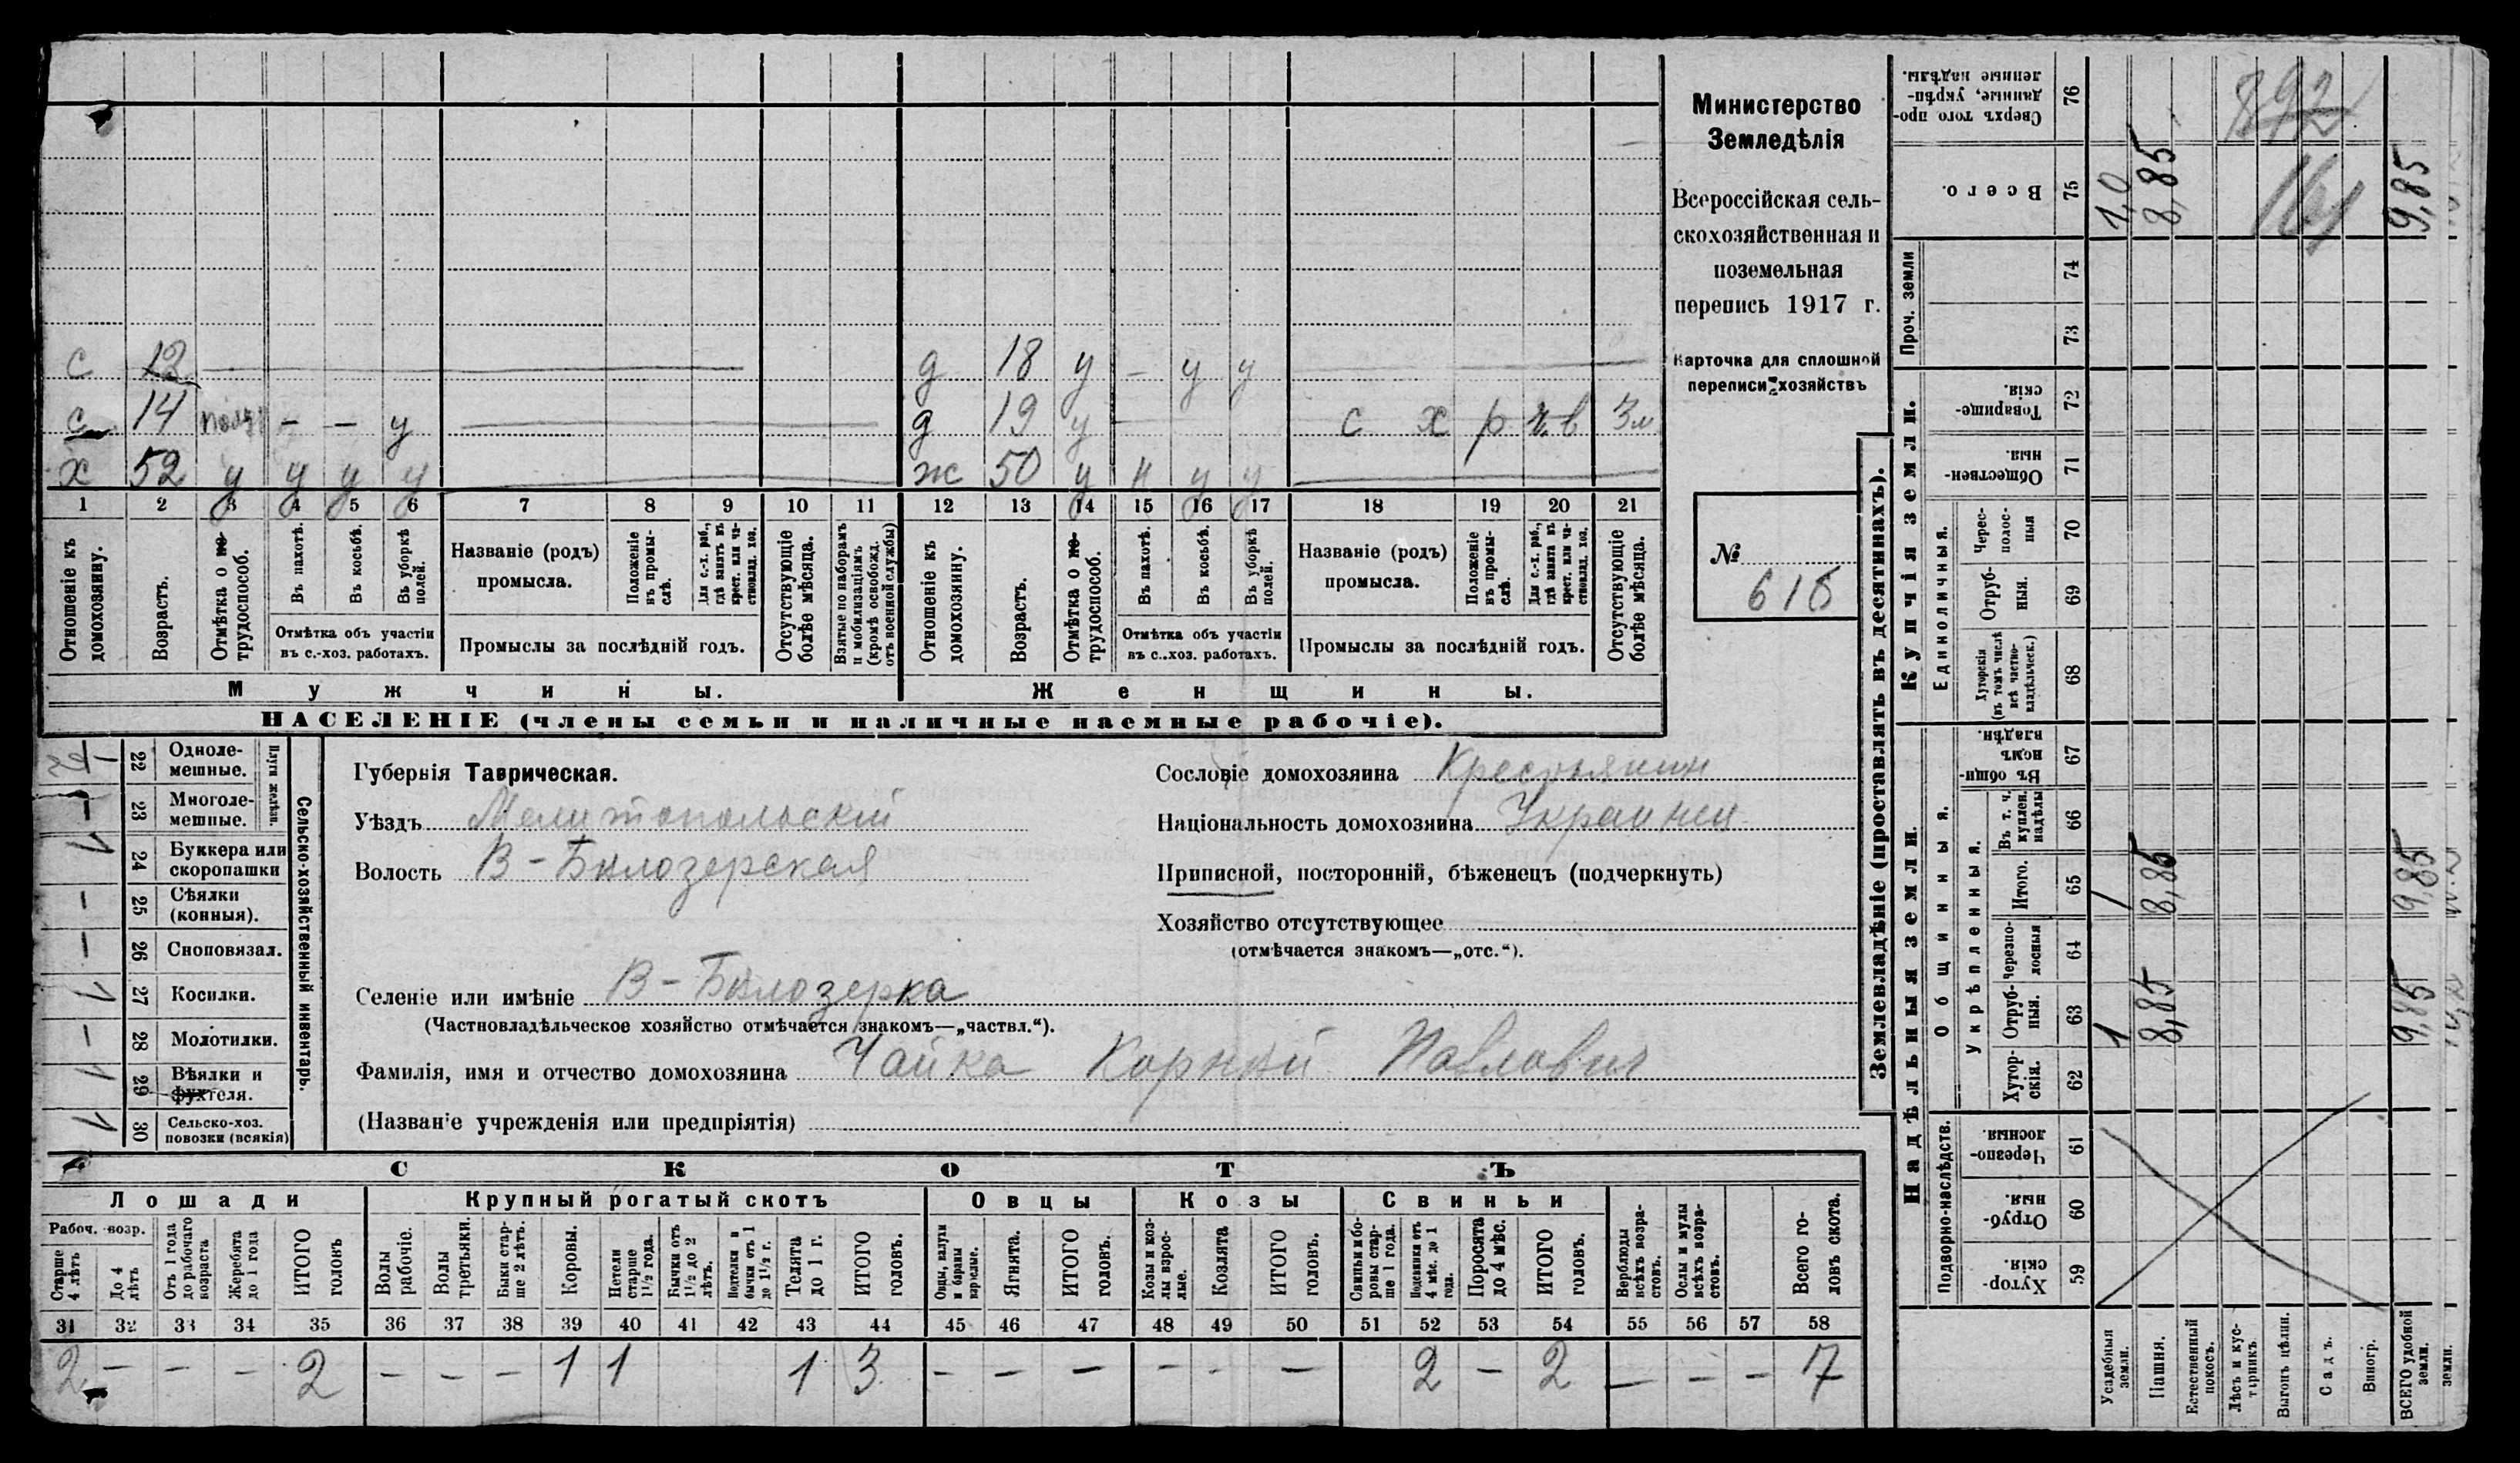 с 12 — д 18 у – у у —
с 14 – – у — д 19 у – с х р ч.в 3м
х 52 у у у у — ж 50 у н у у —
1 2 3 4 5 6 7 8 9 10 11 12 13 14 15 16 17 18 19 20 21
Отношеніе къ домохозяину.
Возрастъ.
Отмѣтка о не-трудоспособ.
Въ пахотѣ.
Въ косьбѣ.
Въ уборкѣ полей.
Отмѣтка объ участіи въ с.-хоз. работахъ.
Названіе (родъ) промысла.
Положеніе въ промы-слѣ.
Для с.-х. раб., гдѣ занятъ въ крест. или ча-стновлад. хоз.
Промыслы за послѣдній годъ.
Отсутствующіе болѣе мѣсяца.
Взятые по наборамъ и мобилизаціямъ (кромѣ освобожд. отъ военной службы)
Отношеніе къ домохозяину.
Возрастъ.
Отмѣтка о не-трудоспособ.
Въ пахотѣ.
Въ косьбѣ.
Въ уборкѣ полей.
Отмѣтка объ участіи въ с.-хоз. работахъ.
Названіе (родъ) промысла.
Положеніе въ промы-слѣ.
Для с.-х. раб., гдѣ занята въ крест. или ча-стновлад. хоз.
Промыслы за послѣдній годъ.
Отсутствующіе болѣе мѣсяца.
Мужчины.
Женщины.
НАСЕЛЕНІЕ (члены семьи и наличные наемные рабочіе).
Министерство
Земледѣлія
Всероссійская сель-
скохозяйственная и
поземельная
перепись 1917 г.
Карточка для сплошной
переписи хозяйствъ
№
616
Сельско-хозяйственный инвентарь.
Плуги желѣзн.
22 Одноле-мешные.
– 23 Многоле-мешные.
1 24 Буккера или скоропашки
– 25 Сѣялки (конныя).
– 26 Сноповязал.
1 27 Косилки.
– 28 Молотилки.
1 29 Вѣялки и фухтеля.
1 30 Сельско-хоз. повозки (всякія)
Губернія Таврическая.
Уѣздъ Мелитопольскій
Волость В-Бѣлозерская
Селеніе или имѣніе В-Бѣлозерка
(Частновладѣльческое хозяйство отмѣчается знакомъ—„частвл.“).
Фамилія, имя и отчество домохозяина Чайка Корній Павлович
(Названіе учрежденія или предпріятія)
Сословіе домохозяина Крестьянин
Національность домохозяина Украинец
Приписной, посторонній, бѣженецъ (подчеркнуть)
Хозяйство отсутствующее
(отмѣчается знакомъ—„отс.“).
СКОТЪ
Лошади
Крупный рогатый скотъ
Овцы
Козы
Свиньи
Рабоч. возр.
Старше 4 лѣтъ
До 4 лѣтъ
Отъ 1 года до рабочаго возраста
Жеребята до 1 года
ИТОГО головъ
Волы рабочіе.
Волы третьяки.
Быки стар-ше 2 лѣтъ.
Коровы.
Нетели старше 1½ года.
Бычки отъ 1½ до 2 лѣтъ.
Подтелки и бычки отъ 1 до 1½ г.
Телята до 1 г.
ИТОГО головъ.
Овцы, валухи и бараны взрослые.
Ягнята.
ИТОГО головъ.
Козы и коз-лы взрос-лые.
Козлята
ИТОГО головъ.
Свиньи и бо-ровы стар-ше 1 года.
Подсвинки отъ 4 мѣс. до 1 года.
Поросята до 4 мѣс.
ИТОГО головъ.
Верблюды всѣхъ возра-стовъ.
Ослы и мулы всѣхъ возра-стовъ.
Всего го-ловъ скота.
31 32 33 34 35 36 37 38 39 40 41 42 43 44 45 46 47 48 49 50 51 52 53 54 55 56 57 58
2 – – – 2 – – – 1 1 1 3 – – – – – – 2 – 2 – – – 7
Землевладѣніе (проставлять въ десятинахъ).
Купчія земли.
Надѣльныя земли.
Сверхъ того про-данные, укрѣп-ленные надѣлы. 76
Всего. 75 1,0 8,85 9,85
892
161
Проч. земли 74 73
Товарище-скія. 72
Обществен-ныя. 71
Единоличныя.
Черес-полос-ныя 70
Отруб-ныя. 69
Хуторскія (въ томъ числѣ всѣ частно-владѣльческ.) 68
Общинныя.
Въ общин-номъ владѣн. 67
Укрѣпленныя.
Въ т. ч. куплен. надѣлы 66
Итого. 65 1 8,85 9,85
Черезпо-лосныя 64
Отруб-ныя. 63 1 8,85 9,85
Хутор-скія. 62
Подворно-наслѣдств.
Черезпо-лосныя. 61
Отруб-ныя. 60
Хутор-скія. 59
Усадебныя земли.
Пашня.
Естественный покосъ.
Лѣсъ и кус-тарникъ.
Выгонъ цѣлин.
Садъ.
Виногр.
ВСЕГО удобной земли.
земли.